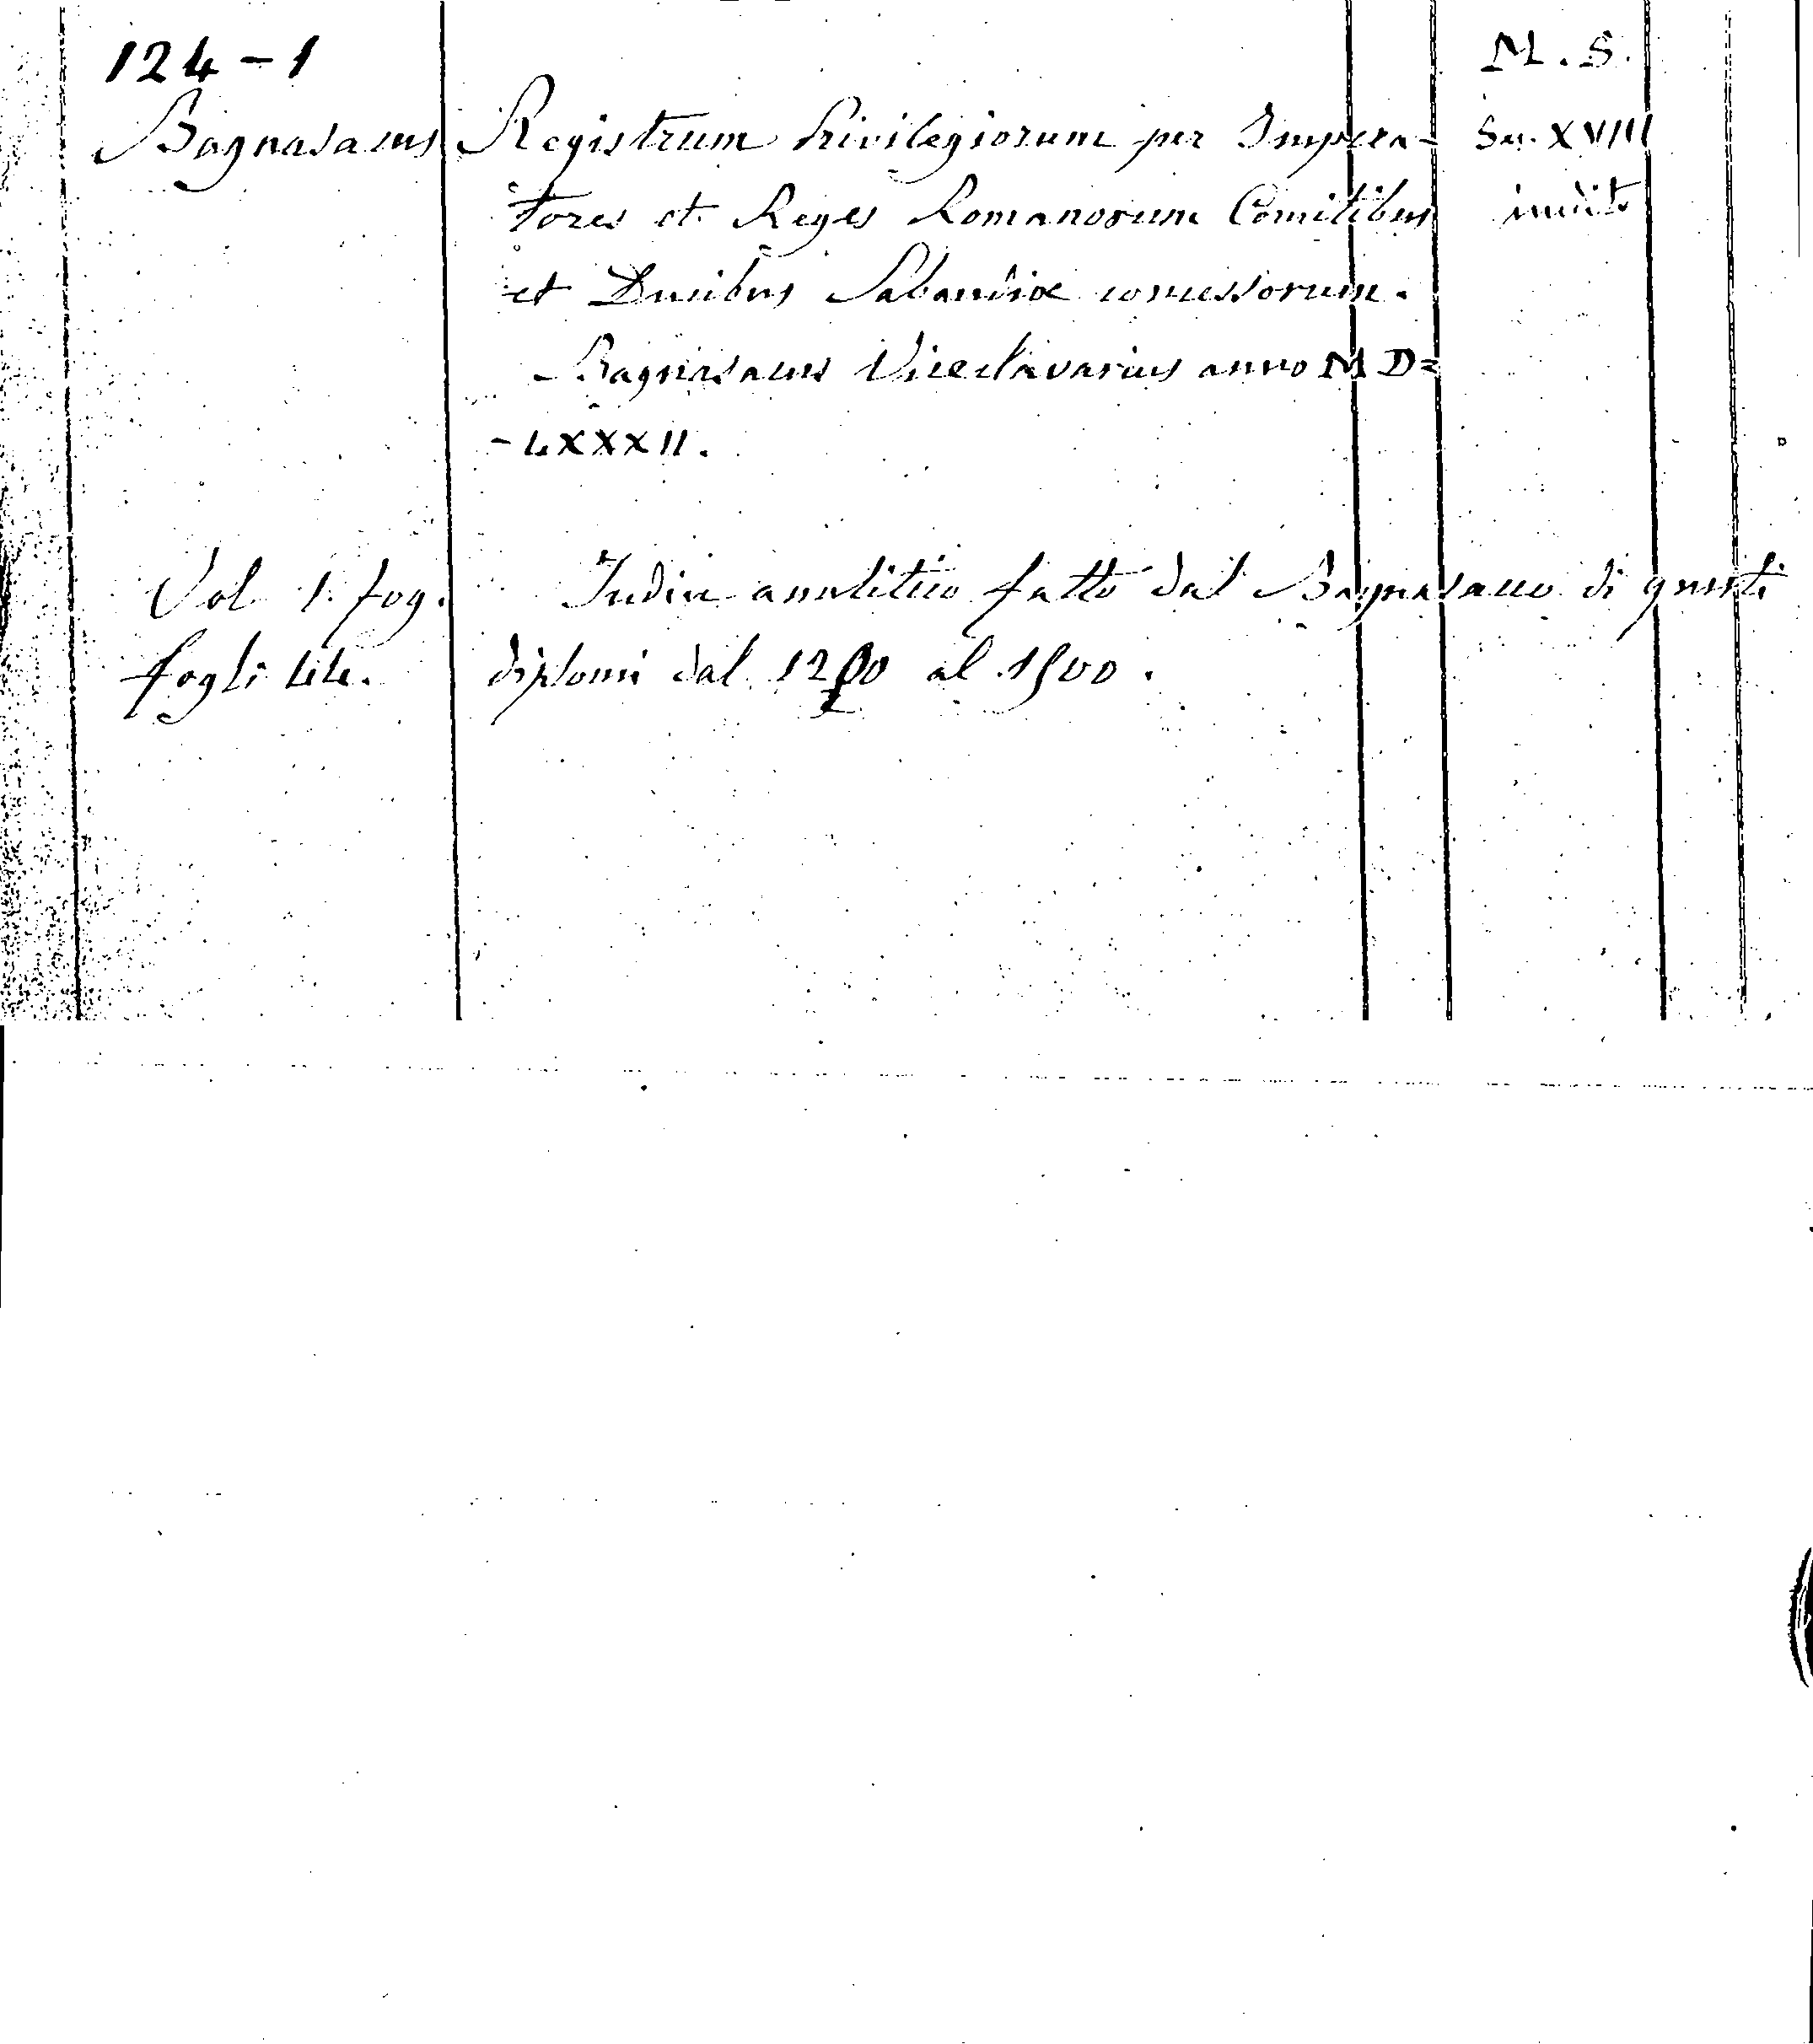 124 - 1
M. S.
Bagnasacus Registrum Privilegiorum per Impera- Sec. XVIII
tores et Reges Romanorum Comitibus inedito
et Ducibus Sabaudiæ concessorum.
Bagnasacus Viceclavarius anno MD=
- LXXXII.
Vol. 1. fog. Indice analitico fatto dal Bagnasacco di questi
fogli 44. diplomi dal 1200 al 1500.